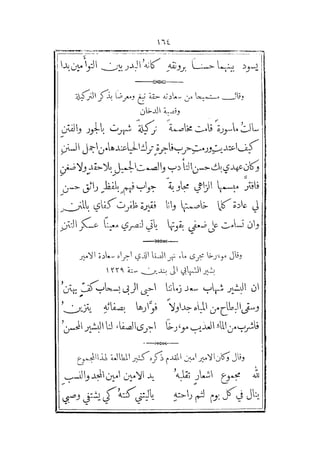 ١٦٤
يسود بينهما حسنا برونقه كانه البدر بين التوأمين بدا
وقال مستميحا من سعادته حقة تبغ ومعرضا بذكر النركيلة
وقصبة الدخان
سالت ماسورة قامت مخاصمة نركيلة شهرت بالجور والفتن
كيف اعتديت ورمت حرب فاجرة ترك الحيا عندها من اجمل السنن
وكان عهدي بك حسن التأدب والصمت الجميل بلا حقد ولا ضغن
فافتر مبسمها الزاهي مجاوبة جواب فهم بلفظ رائق حسن
لي عادة كلما خاصمتها وانا فقيرة ظفرت كفاي بالمنن
وان تسامت على ضعفي بقوتها ياتي لنصري معينا عسكر التتن
وقال مؤرخا مجرى ماء نهر الصفا الذي اجراه سعادة الامير
بشير الشهابي الى بتدين سنة ١٢٢٩
ان البشير شهاب سعد زماننا احيى الربى بسحاب كف يهتن
وسقى البطاح من المياه جداولا فوارها بصفائه يتزين
فاشرب من الماء العذيب مؤرخا اجرى الصفاء لنا البشير المحسن
وقال وكان الامير امين المقدم ذكره كثير المطالعة لهذا المجموع
لله مجموع اشعار تقلبه يد الامين امين المجد والنسب
ينال في كل يوم لثم راحته ياليتني كنته كي يشتفي وصبي